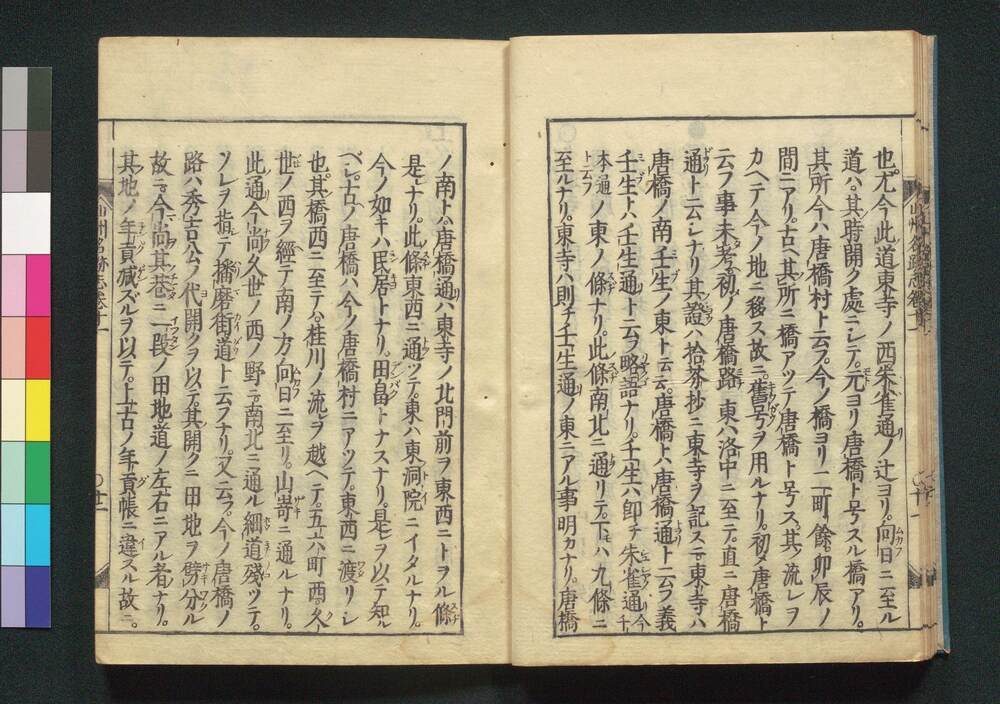 也。尤今此道東寺ノ西朱雀通ノ辻ヨリ。向日ニ至ル
道ハ。其時開ク處ニシテ。元ヨリ唐橋ト号スル橋アリ。
其所今ハ唐橋村ト云フ。今ノ橋ヨリ二町餘。卯辰ノ
間ニアリ。古ヘ其所ニ橋アツテ唐橋ト号ス。其ノ流レヲ
カヘテ今ノ地ニ移ス故ニ。舊号ヲ用ルナリ。初メ唐橋ト
云フ事未考。初ノ唐橋路。東ハ洛中ニ至テ。直ニ唐橋
通ト云シナリ其證ハ拾芥抄ニ東寺ヲ記スニ。東寺ハ
唐橋ノ南壬生ノ東ト云云。唐橋トハ唐橋通ト云フ義
壬生トハ壬生通ト云フ略語ナリ。壬生ハ卽チ朱雀通今千
本通ノ東ノ條ナリ。此條南北ニ通リテ。下ハ九條ニ
ト云フ
至ルナリ。東寺ハ則チ壬生通ノ東ニアル事明カナリ。唐橋
ノ南トハ。唐橋通ハ東寺ノ北門前ヲ東西ニトヲル條
是レナリ。此條東西ニ通ツテ。東ハ東洞院ニイタルナリ。
今ノ如キハ民居トナリ。田畠トナスナリ。是ヲ以テ知ル
ベシ。古ノ唐橋ハ今ノ唐橋村ニアツテ。東西ニ渡リシ
也。其橋西ニ至テ。桂川ノ流ヲ越ヘテ。五六町西。久
世ノ西ヲ經テ南ノ方。向日ニ至リ。山嵜ニ通ルナリ。
此通今尚久世ノ西ノ野ニ。南北ニ通ル細道殘ツテ。
ソレヲ指テ播磨街道ト云フナリ。又云フ。今ノ唐橋ノ
路ハ秀吉公ノ代開クヲ以テ。其開クニ田地ヲ劈分ル
故ニ。今尚其巷ニ一段ノ田地道ノ左右ニアル者ナリ。
其地ノ年貢減ズルヲ以テ。上古ノ年貢帳ニ違スル故ニ。
山州名跡志巻十一